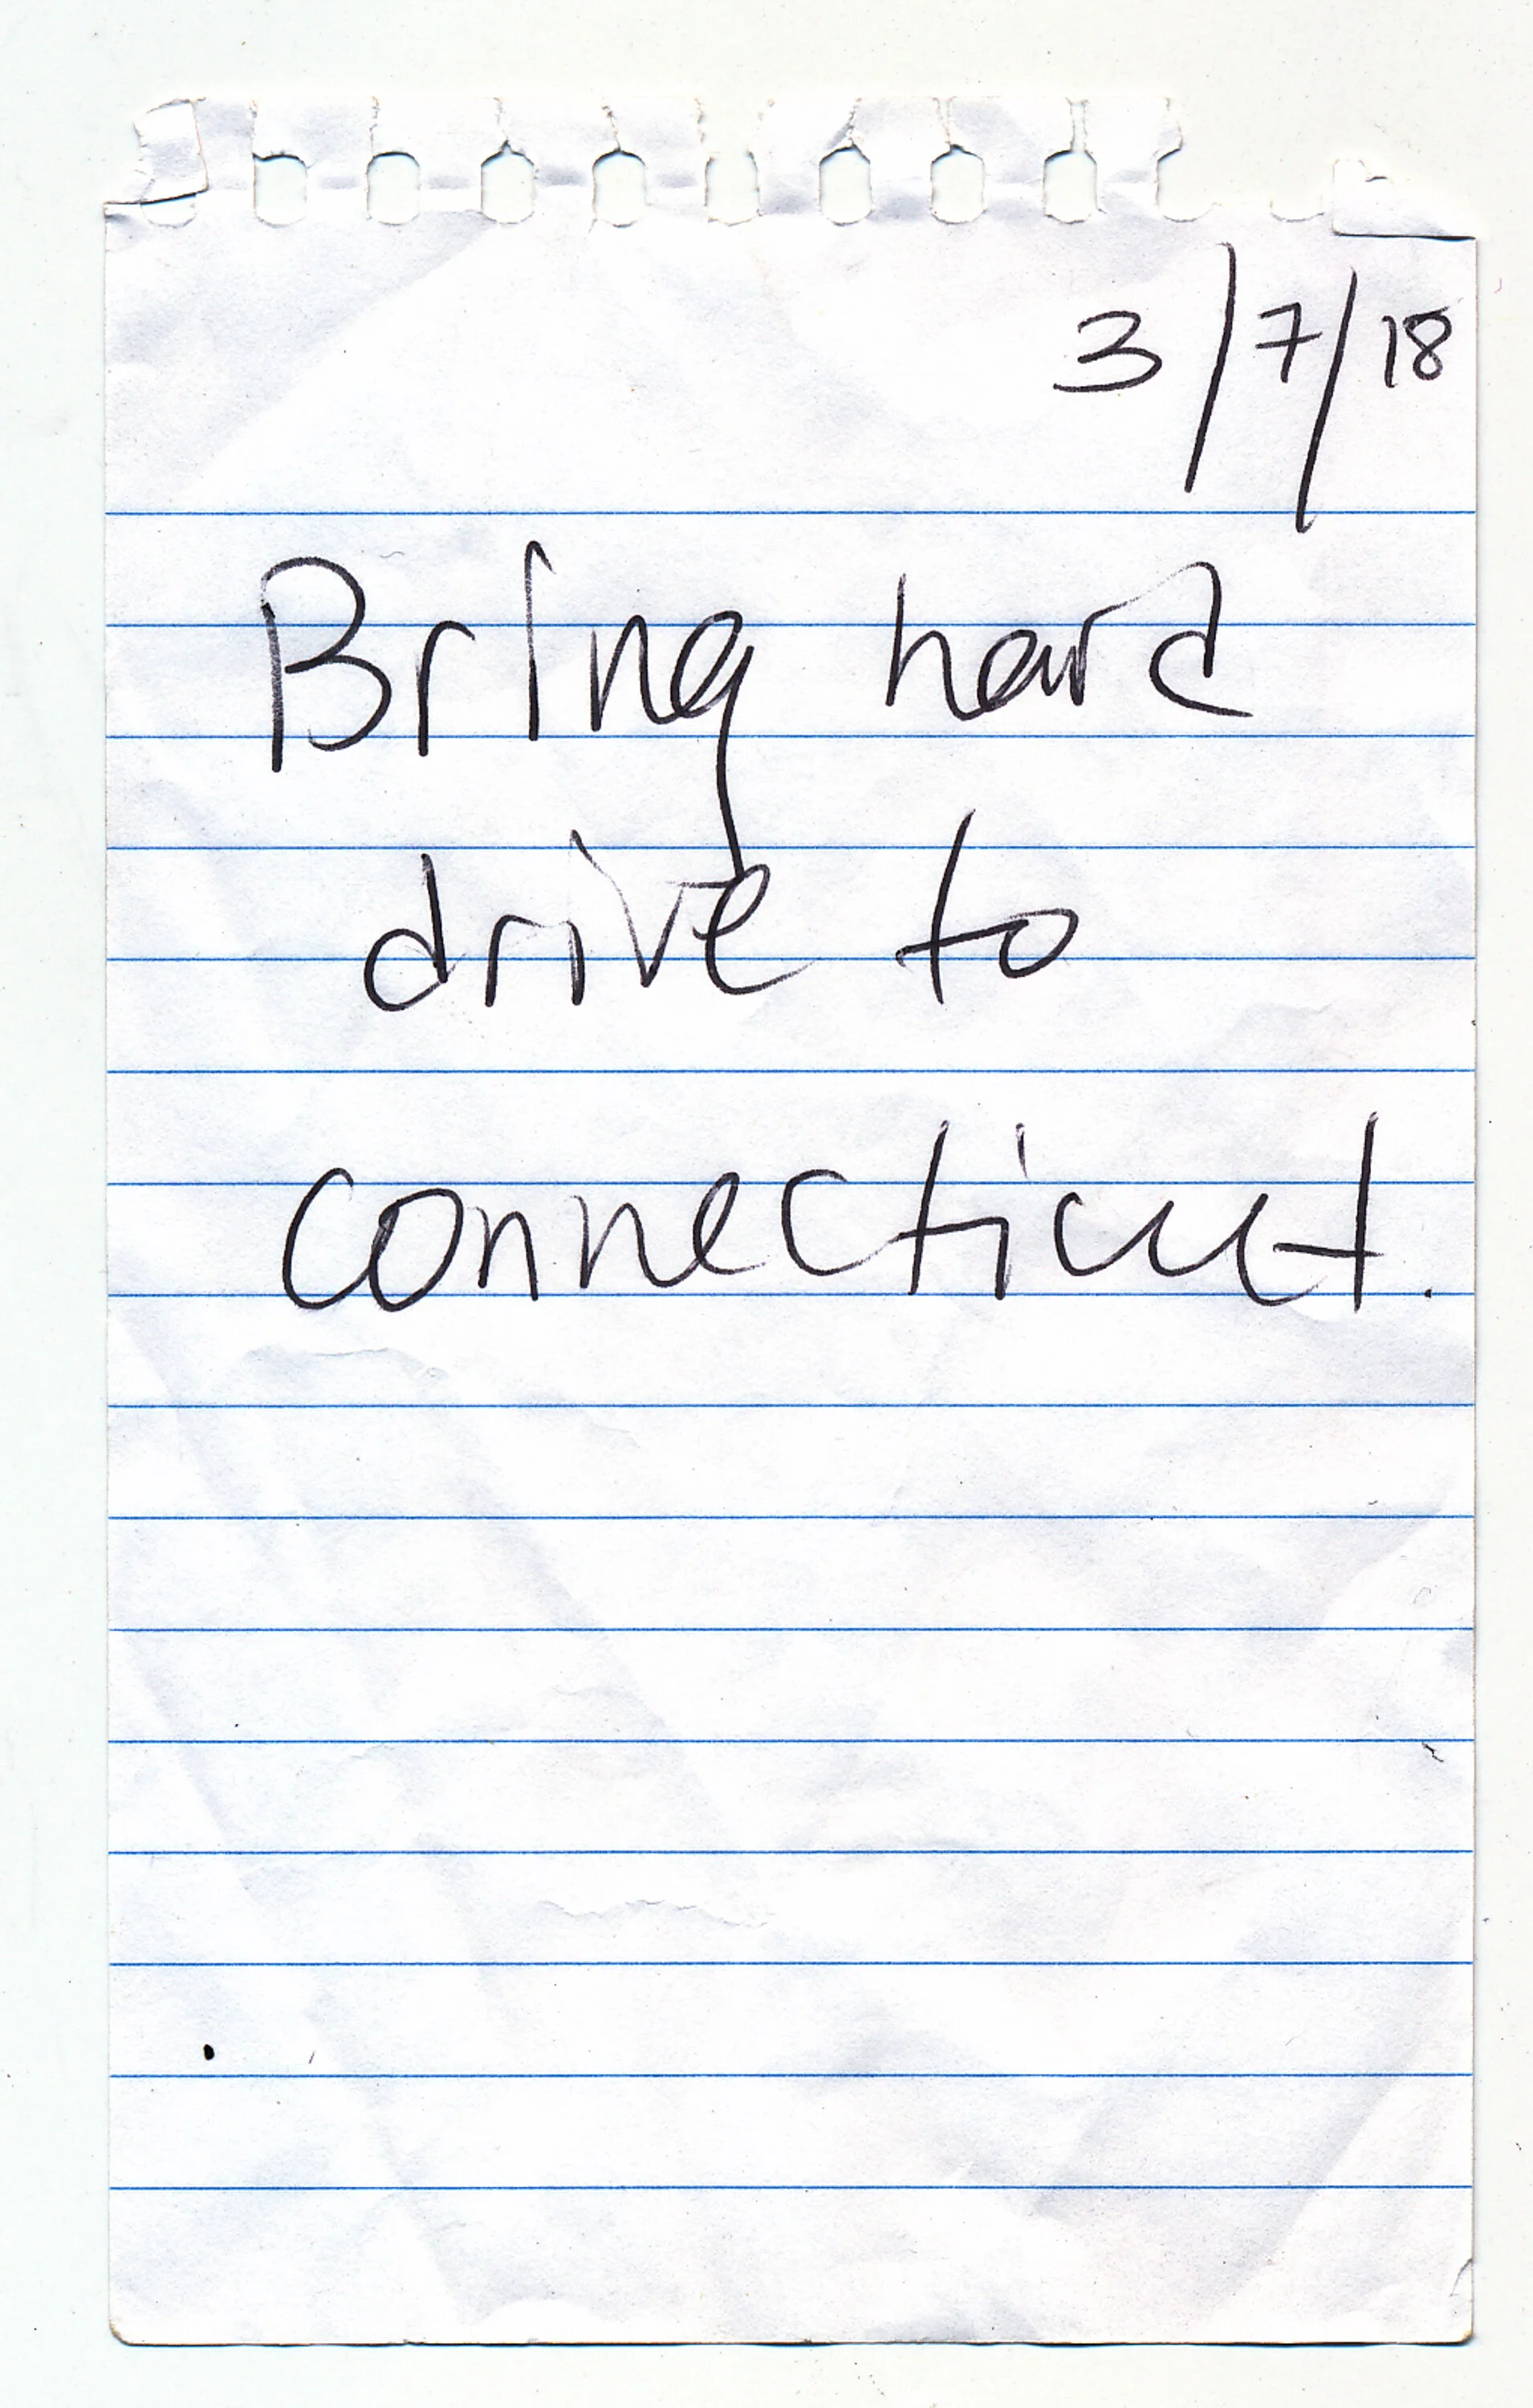 3/7/18
Bring hard
drive to
connecticut.